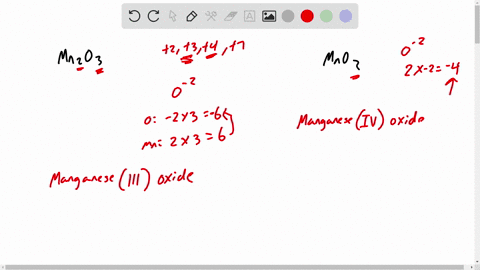 Mn2O3
+2, +3, +4, +7
O-2
O: -2 x 3 = -6
mn: 2 x 3 = 6
Manganese (III) oxide
MnO2
O-2
2 x -2 = -4
Manganese (IV) oxide